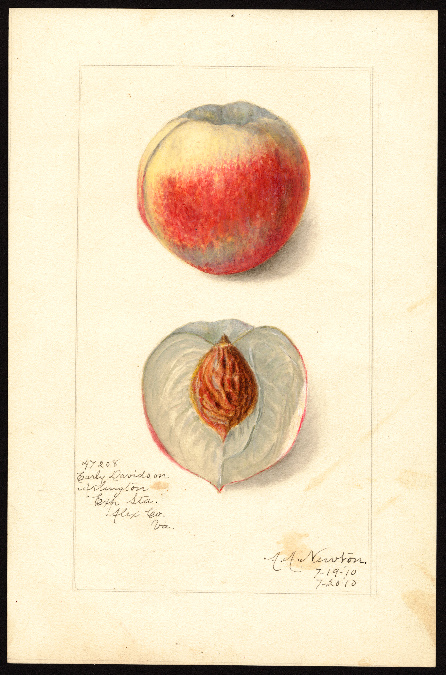 47208
Early Davidson
Arlington
Exp. Sta.
Alex Co.
Va.
A.A. Newton
7-19-10
7-20-10